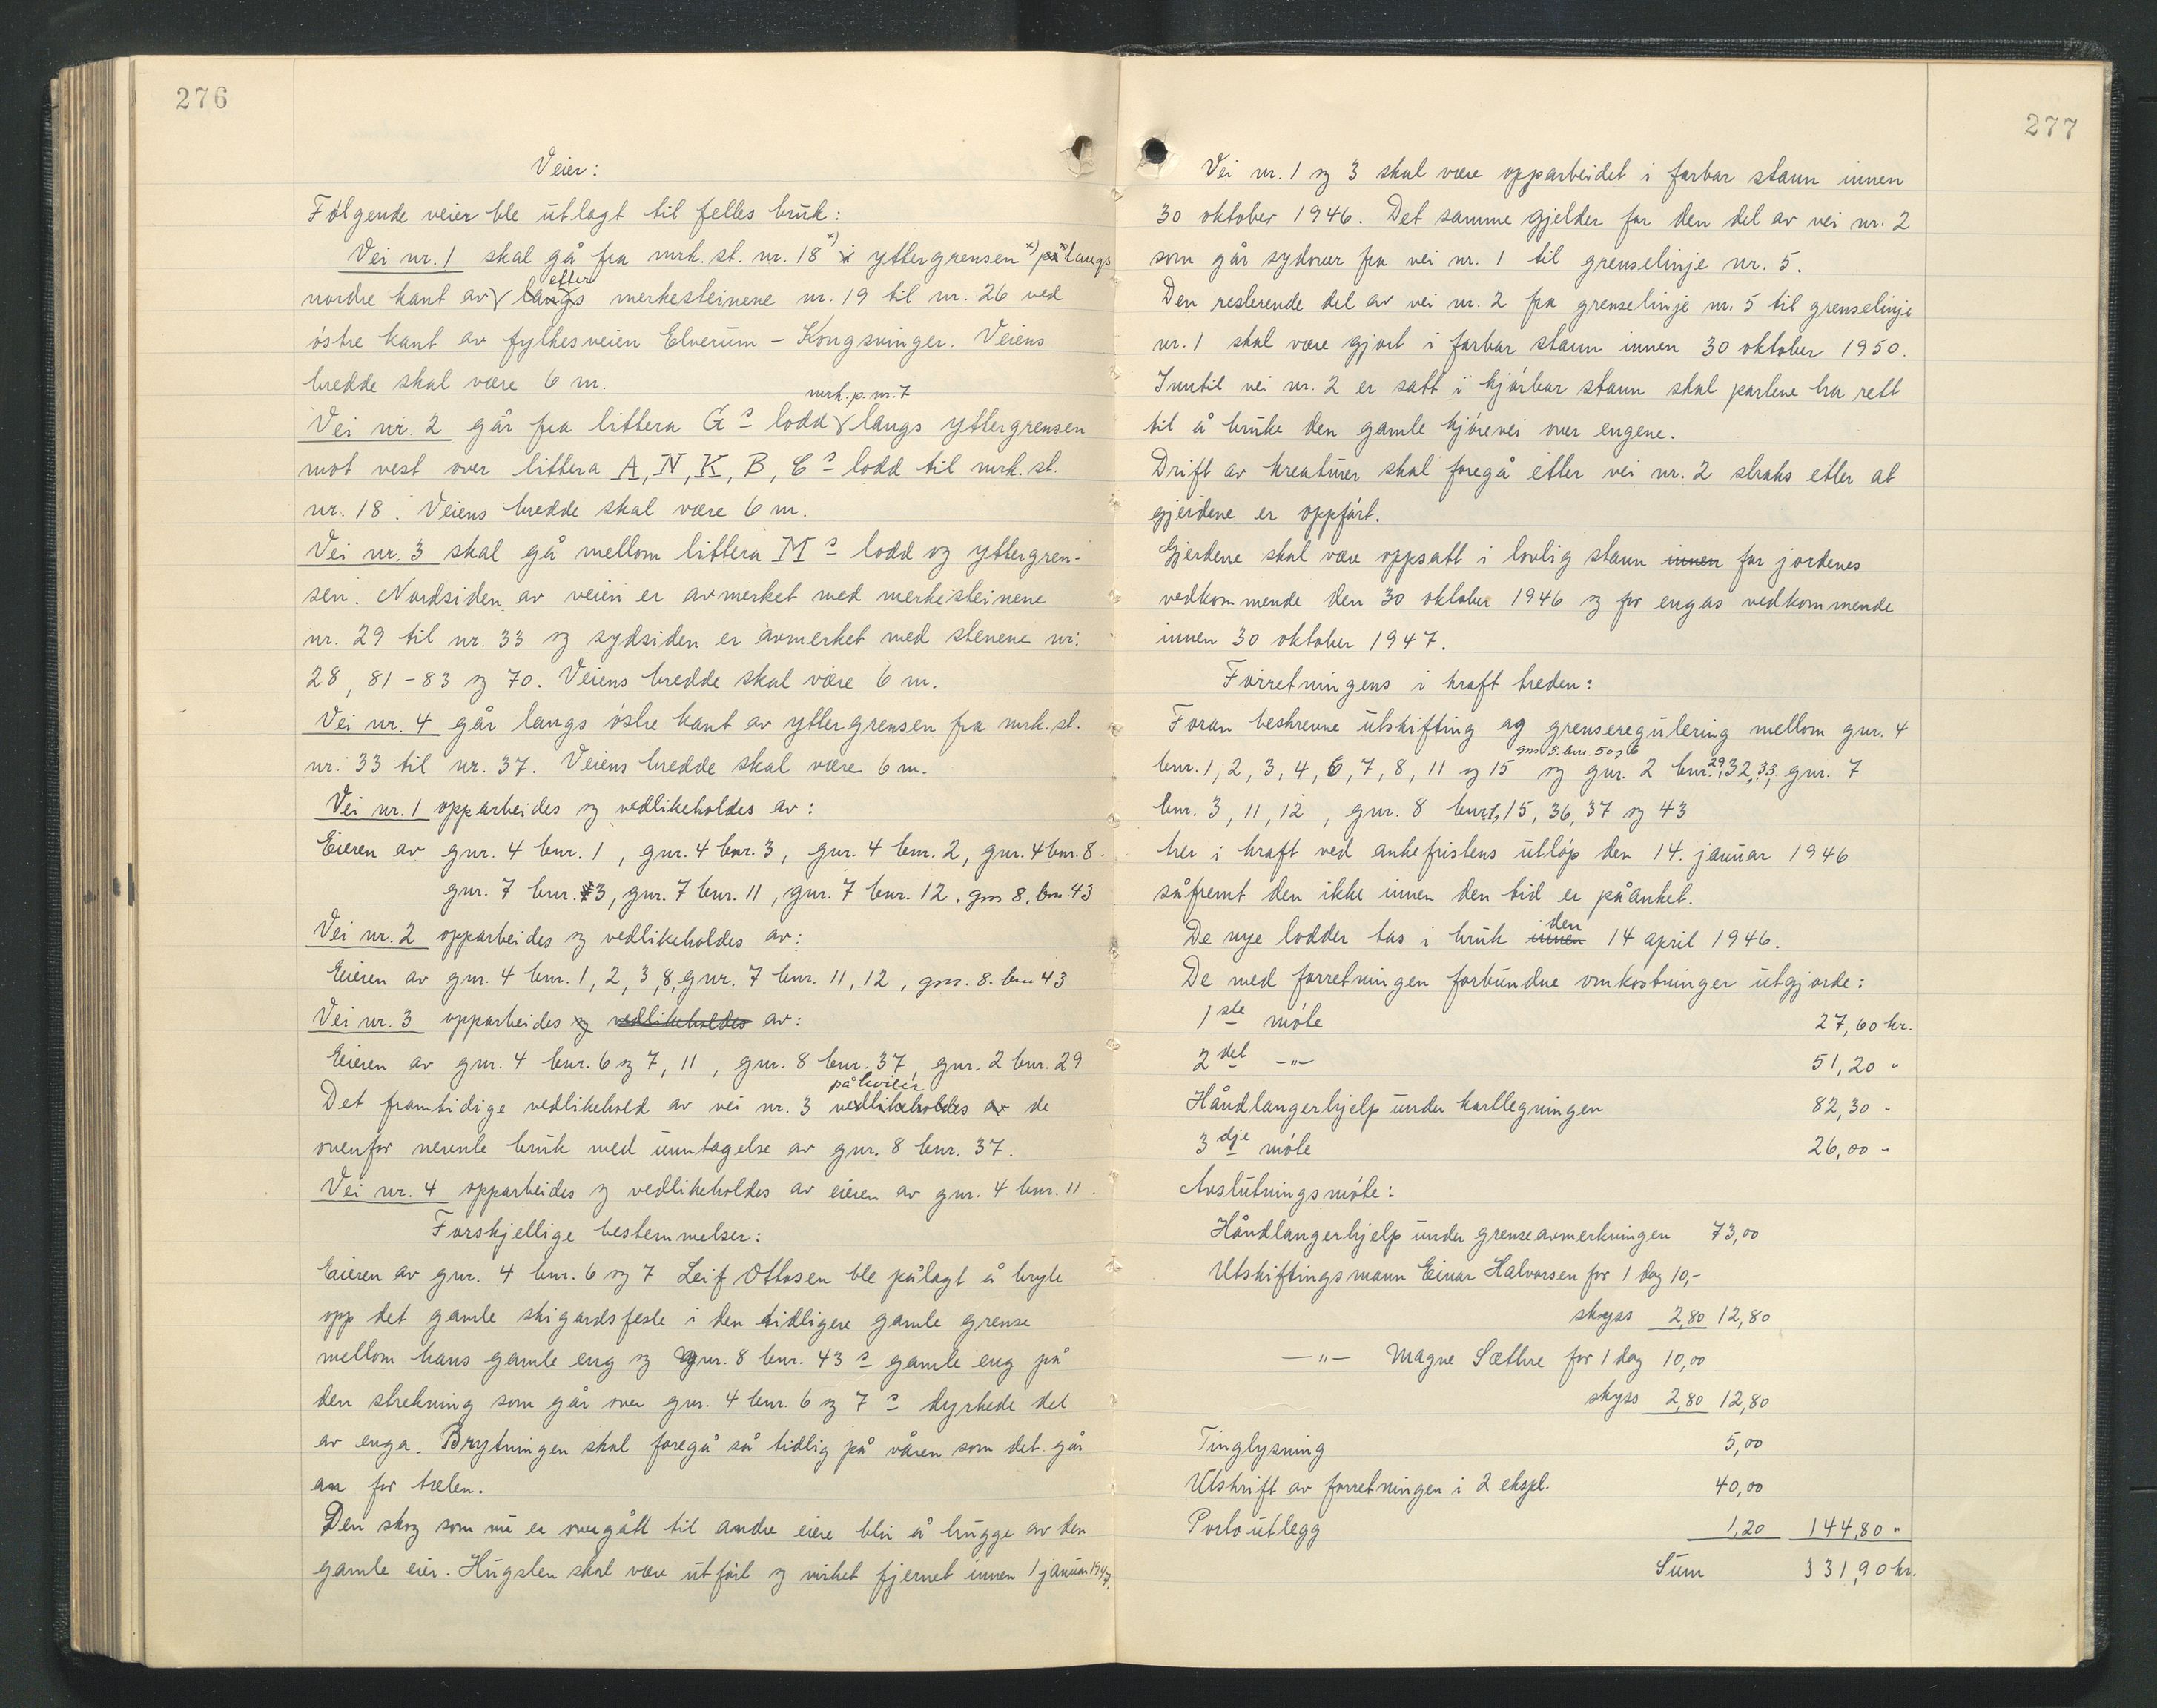 276
Veier:
Følgende veier ble utlagt til felles bruk:
Vei nr. 1 skal gå fra mrk. st. nr. 18 x) i yttergrensen x) på langs
efter
nordre kant av langs merkesteinene nr. 19 til nr. 26 ved
østre kant av fylkesveien Elverum - Kongsvinger. Veiens
bredde skal være 6 m.
mrk. p. nr. 7
Vei nr. 2 går fra littera G s lodd langs yttergrensen
mot vest over littera A, N, K, B, C s lodd til mrk. st.
nr. 18. Veiens bredde skal være 6 m.
Vei nr. 3 skal gå mellom littera M s lodd og yttergren-
sen. Nordsiden av veien er avmerket med merkesteinene
nr. 29 til nr. 33 og sydsiden er avmerket med stenene nr:
28, 81-83 og 70. Veiens bredde skal være 6 m.
Vei nr. 4 går langs østre kant av yttergrensen fra mrk. st.
nr. 33 til nr. 37. Veiens bredde skal være 6 m.
Vei nr. 1 opparbeides og vedlikeholdes av:
Eieren av gnr. 4 bnr. 1, gnr. 4 bnr. 3, gnr. 4 bnr. 2, gnr. 4 bnr. 8.
gnr. 7 bnr. 3, gnr. 7 bnr. 11, gnr. 7 bnr. 12. gnr 8. bnr 43
Vei nr. 2 opparbeides og vedlikeholdes av:
Eieren av gnr. 4 bnr. 1, 2, 3, 8, gnr. 7 bnr. 11, 12, gnr. 8. bnr 43
Vei nr. 3 opparbeides og vedlikeholdes av:
Eieren av gnr. 4 bnr. 6 og 7, 11, gnr. 8 bnr. 37, gnr. 2 bnr. 29
påhviler
Det framtidige vedlikehold av vei nr. 3 vedlikeholdes av de
ovenfor nevnte bruk med unntagelse av gnr. 8 bnr. 37.
Vei nr. 4 opparbeides og vedlikeholdes av eieren av gnr. 4 bnr. 11.
Forskjellige bestemmelser:
Eieren av gnr. 4 bnr. 6 og 7 Leif Ottosen ble pålagt å bryte
opp det gamle skigardsfeste i den tidligere gamle grense
mellom hans gamle eng og gnr. 8 bnr. 43 s gamle eng på
den strekning som går over gnr. 4 bnr. 6 og 7 s dyrkede del
av enga. Brytningen skal foregå så tidlig på våren som det går
an for tælen.
Den skog som nu er overgått til andre eiere blir å hugge av den
gamle eier. Hugsten skal være utført og virket fjernet innen 1 januar 1947.
277
Vei nr. 1 og 3 skal være opparbeidet i farbar stann innen
30 oktober 1946. Det samme gjelder for den del av vei nr. 2
som går sydover fra vei nr. 1 til grenselinje nr. 5.
Den resterende del av vei nr. 2 fra grenselinje nr. 5 til grenselinje
nr. 1 skal være gjort i farbar stann innen 30 oktober 1950.
Inntil vei nr. 2 er satt i kjørbar stann skal partene ha rett
til å bruke den gamle kjørevei over engene.
Drift av kreaturer skal foregå etter vei nr. 2 straks etter at
gjerdene er oppført.
Gjerdene skal være oppsatt i lovlig stann innen for jordenes
vedkommende den 30 oktober 1946 og for engas vedkommende
innen 30 oktober 1947.
Forretningens i kraft treden:
Foran beskrevne utskifting og grenseregulering mellom gnr. 4
gnr 3. bnr. 5 og 6
bnr. 1, 2, 3, 4, 6, 7, 8, 11 og 15 og gnr. 2 bnr. 29, 32, 33, gnr. 7
bnr. 3, 11, 12, gnr. 8 bnr. 1, 15, 36, 37 og 43
trer i kraft ved ankefristens utløp den 14. januar 1946
såfremt den ikke innen den tid er påanket.
den
De nye lodder tas i bruk innen 14 april 1946.
De med forretningen forbundne omkostninger utgjorde:
1 ste møte 27,60 kr.
2 det -"- 51,20 "
Håndlangerhjelp under kartlegningen 82,30 "
3 dje møte 26,00 "
Avslutningsmøte:
Håndlangerhjelp under grenseavmerkningen 73,00
Utskiftingsmann Einar Halvorsen for 1 dag 10,-
skyss 2,80 12,80
-"- Magne Sæthre for 1 dag 10,00
skyss 2,80 12,80
Tinglysning 5,00
Utskrift av forretningen i 2 ekspl. 40,00
Porto utlegg 1,20 144,80 "
Sum 331,90 kr.